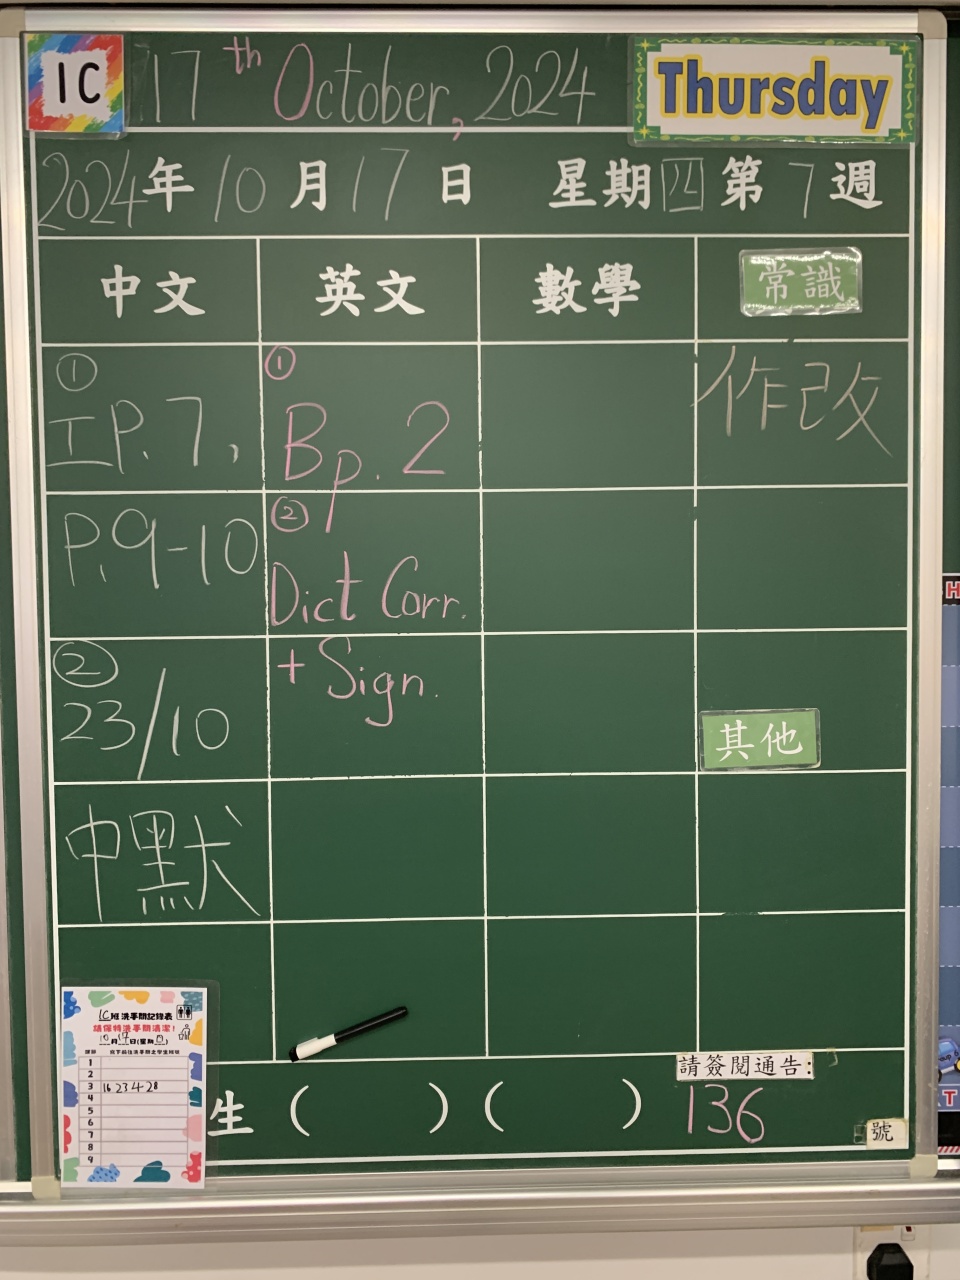 1C 17th October, 2024 Thursday
2024年10月17日 星期四第7週
中文 英文 數學 常識
①
工P.7,
P.9-10
②
23/10
中默
①
Bp.2
②
Dict Corr.
+ Sign.
作改
其他
1C班洗手間記錄表
請保持洗手間清潔！
10月17日(星期四)
1
2
3 16 23 4 28
4
5
6
7
8
9
生 ( ) ( )
請簽閱通告:
136
號